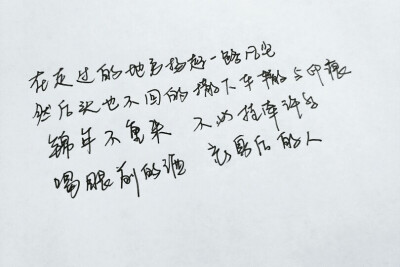 在走过的地方扬起一路风尘
然后头也不回的撒下车辙与印痕
锦年不重来 不必挂牵许多
喝眼前的酒 忘身后的人